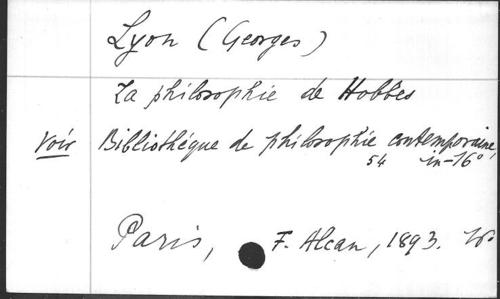 Lyon (Georges)
La philosophie de Hobbes
Voir Bibliothéque de philosophie contemporaine,
54 in-16°
Paris, F. Alcan, 1893.